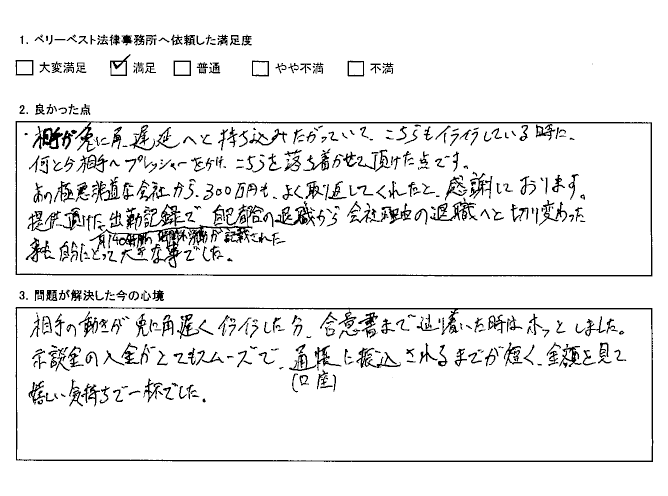 1. ベリーベスト法律事務所へ依頼した満足度
大変満足 満足 普通 やや不満 不満
2. 良かった点
・相手が兎に角、遅延へと持ち込みたがっていて、こちらもイライラしている時に、
何とか相手へプレッシャーをかけ、こちらを落ち着かせて頂けた点です。
あの極悪非道な会社から、300万円も、よく取り返してくれたと、感謝しております。
提供頂けた出勤記録で自己都合の退職から会社理由の退職へと切り変わった
月140時間の 時間外労働が記載された
事も自分にとって大きな事でした。
3. 問題が解決した今の心境
相手の動きが兎に角遅くイライラした分、合意書まで辿り着いた時はホッとしました。
示談金の入金がとてもスムーズで、通帳に振込されるまでが短く、金額を見て
(口座)
嬉しい気持ちで一杯でした。